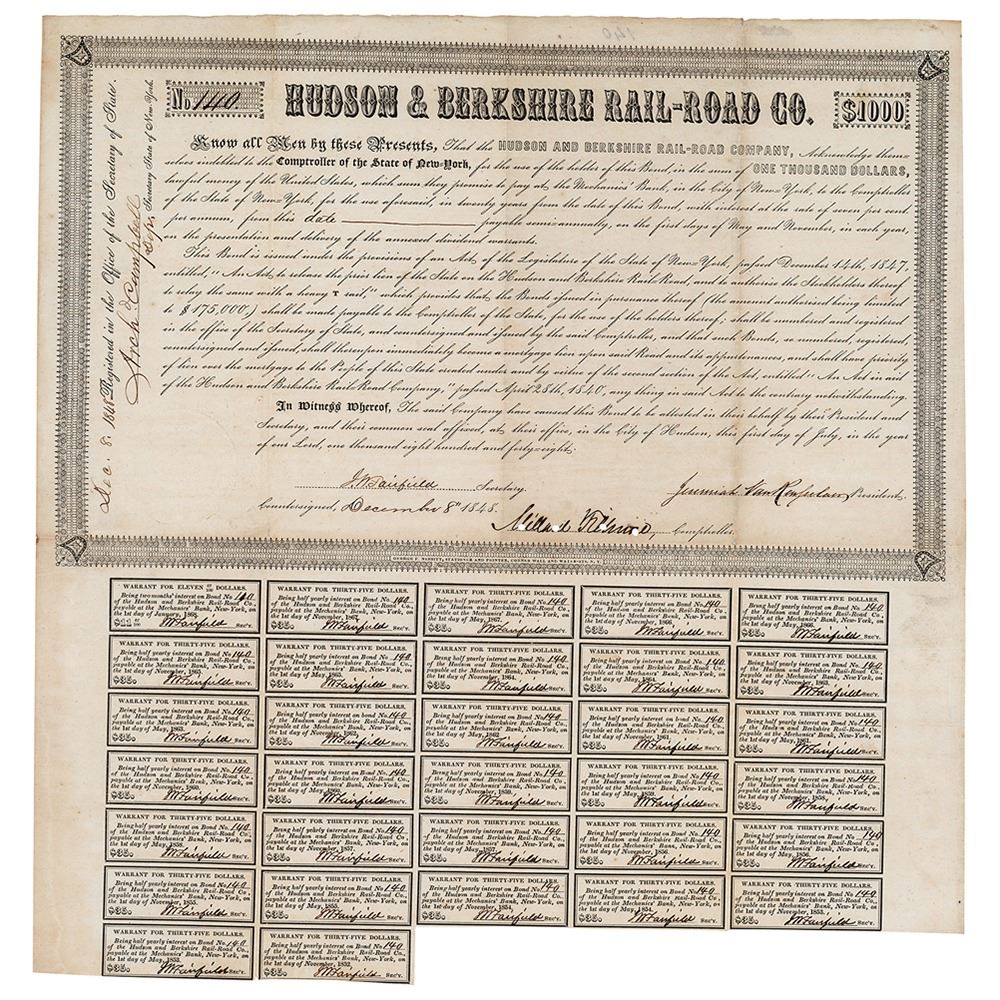 140
No. 140.
HUDSON & BERKSHIRE RAIL-ROAD CO.
$1000
Know all Men by these Presents, That the HUDSON AND BERKSHIRE RAIL-ROAD COMPANY, Acknowledge them=
selves indebted to the Comptroller of the State of New-York, for the use of the holder of this Bond, in the sum of ONE THOUSAND DOLLARS,
lawful money of the United States, which sum they promise to pay at the Mechanics' Bank, in the City of New=York, to the Comptroller
of the State of New=York, for the use aforesaid, in twenty years from the date of this Bond, with interest at the rate of seven per cent.
per annum, from this date payable semi=annually, on the first days of May and November, in each year,
on the presentation and delivery of the annexed dividend warrants.
This Bond is issued under the provisions of an Act of the Legislature of the State of New=York, passed December 14th, 1847,
entitled, "An Act, to release the prior lien of the State on the Hudson and Berkshire Rail=Road, and to authorise the Stockholders thereof
to relay the same with a heavy T rail," which provides that the Bonds issued in pursuance thereof (the amount authorised being limited
to $175,000,) shall be made payable to the Comptroller of the State, for the use of the holders thereof; shall be numbered and registered
in the office of the Secretary of State, and countersigned and issued by the said Comptroller, and that such Bonds, so numbered, registered,
countersigned and issued, shall thereupon immediately become a mortgage lien upon said Road and its appurtenances, and shall have priority
of lien over the mortgage to the People of this State created under and by virtue of the second section of the Act, entitled "An Act in aid
of the Hudson and Berkshire Rail=Road Company," passed April 28th, 1840, any thing in said Act to the contrary notwithstanding.
In Witness Whereof, The said Company have caused this Bond to be attested in their behalf by their President and
Secretary, and their common seal affixed, at their office, in the City of Hudson, this first day of July, in the year
of our Lord, one thousand eight hundred and forty=eight.
J W Fairfield Secretary.
Jeremiah Van Rensselaer President.
Countersigned, December 8th 1848.
Millard Fillmore, Comptroller.
Dec. 8. 1848 Registered in the Office of the Secretary of State.
Arch'd Campbell
Dep. Secretary State of New York.
WARRANT FOR ELEVEN 67/100 DOLLARS.
Being two months' interest on Bond No. 140
of the Hudson and Berkshire Rail-Road Co.,
payable at the Mechanics' Bank, New-York, on
the 1st day of January, 1868.
$11 67/100 JW Fairfield SEC'Y.
WARRANT FOR THIRTY-FIVE DOLLARS.
Being half yearly interest on Bond No. 140
of the Hudson and Berkshire Rail-Road Co.,
payable at the Mechanics' Bank, New-York, on
the 1st day of November, 1867.
$35. JW Fairfield SEC'Y.
WARRANT FOR THIRTY-FIVE DOLLARS.
Being half yearly interest on Bond No. 140
of the Hudson and Berkshire Rail-Road Co.,
payable at the Mechanics' Bank, New-York, on
the 1st day of May, 1867.
$35. JW Fairfield SEC'Y.
WARRANT FOR THIRTY-FIVE DOLLARS.
Being half yearly interest on Bond No. 140
of the Hudson and Berkshire Rail-Road Co.,
payable at the Mechanics' Bank, New-York, on
the 1st day of November, 1866.
$35. JW Fairfield SEC'Y.
WARRANT FOR THIRTY-FIVE DOLLARS.
Being half yearly interest on Bond No. 140
of the Hudson and Berkshire Rail-Road Co.,
payable at the Mechanics' Bank, New-York, on
the 1st day of May, 1866.
$35. JW Fairfield SEC'Y.
WARRANT FOR THIRTY-FIVE DOLLARS.
Being half yearly interest on Bond No. 140
of the Hudson and Berkshire Rail-Road Co.,
payable at the Mechanics' Bank, New-York, on
the 1st day of November, 1865.
$35. JW Fairfield SEC'Y.
WARRANT FOR THIRTY-FIVE DOLLARS.
Being half yearly interest on Bond No. 140
of the Hudson and Berkshire Rail-Road Co.,
payable at the Mechanics' Bank, New-York, on
the 1st day of May, 1865.
$35. JW Fairfield SEC'Y.
WARRANT FOR THIRTY-FIVE DOLLARS.
Being half yearly interest on Bond No. 140
of the Hudson and Berkshire Rail-Road Co.,
payable at the Mechanics' Bank, New-York, on
the 1st day of November, 1864.
$35. JW Fairfield SEC'Y.
WARRANT FOR THIRTY-FIVE DOLLARS.
Being half yearly interest on Bond No. 140
of the Hudson and Berkshire Rail-Road Co.,
payable at the Mechanics' Bank, New-York, on
the 1st day of May, 1864.
$35. JW Fairfield SEC'Y.
WARRANT FOR THIRTY-FIVE DOLLARS.
Being half yearly interest on Bond No. 140
of the Hudson and Berkshire Rail-Road Co.,
payable at the Mechanics' Bank, New-York, on
the 1st day of November, 1863.
$35. JW Fairfield SEC'Y.
WARRANT FOR THIRTY-FIVE DOLLARS.
Being half yearly interest on Bond No. 140
of the Hudson and Berkshire Rail-Road Co.,
payable at the Mechanics' Bank, New-York, on
the 1st day of May, 1863.
$35. JW Fairfield SEC'Y.
WARRANT FOR THIRTY-FIVE DOLLARS.
Being half yearly interest on bond No. 140
of the Hudson and Berkshire Rail-Road Co.,
payable at the Mechanics' Bank, New-York, on
the 1st day of November, 1862.
$35. JW Fairfield SEC'Y.
WARRANT FOR THIRTY-FIVE DOLLARS.
Being half yearly interest on Bond No. 140
of the Hudson and Berkshire Rail-Road Co.,
payable at the Mechanics' Bank, New-York, on
the 1st day of May, 1862.
$35. JW Fairfield SEC'Y.
WARRANT FOR THIRTY-FIVE DOLLARS.
Being half yearly interest on Bond No. 140
of the Hudson and Berkshire Rail-Road Co.,
payable at the Mechanics' Bank, New-York, on
the 1st day of November, 1861.
$35. JW Fairfield SEC'Y.
WARRANT FOR THIRTY-FIVE DOLLARS.
Being half yearly interest on Bond No. 140
of the Hudson and Berkshire Rail-Road Co.,
payable at the Mechanics' Bank, New-York, on
the 1st day of May, 1861.
$35. JW Fairfield SEC'Y.
WARRANT FOR THIRTY-FIVE DOLLARS.
Being half yearly interest on Bond No. 140
of the Hudson and Berkshire Rail-Road Co.,
payable at the Mechanics' Bank, New-York, on
the 1st day of November, 1860.
$35. JW Fairfield SEC'Y.
WARRANT FOR THIRTY-FIVE DOLLARS.
Being half yearly interest on Bond No. 140
of the Hudson and Berkshire Rail-Road Co.,
payable at the Mechanics' Bank, New-York, on
the 1st day of May, 1860.
$35. JW Fairfield SEC'Y.
WARRANT FOR THIRTY-FIVE DOLLARS.
Being half yearly interest on Bond No. 140
of the Hudson and Berkshire Rail-Road Co.,
payable at the Mechanics' Bank, New-York, on
the 1st day of November, 1859.
$35. JW Fairfield SEC'Y.
WARRANT FOR THIRTY-FIVE DOLLARS.
Being half yearly interest on Bond No. 140
of the Hudson and Berkshire Rail-Road Co.,
payable at the Mechanics' Bank, New-York, on
the 1st day of May, 1859.
$35. JW Fairfield SEC'Y.
WARRANT FOR THIRTY-FIVE DOLLARS.
Being half yearly interest on Bond No. 140
of the Hudson and Berkshire Rail-Road Co.,
payable at the Mechanics' Bank, New-York, on
the 1st day of November, 1858.
$35. JW Fairfield SEC'Y.
WARRANT FOR THIRTY-FIVE DOLLARS.
Being half yearly interest on Bond No. 140
of the Hudson and Berkshire Rail-Road Co.,
payable at the Mechanics' Bank, New-York, on
the 1st day of May, 1858.
$35. JW Fairfield SEC'Y.
WARRANT FOR THIRTY-FIVE DOLLARS.
Being half yearly interest on Bond No. 140
of the Hudson and Berkshire Rail-Road Co.,
payable at the Mechanics' Bank, New-York, on
the 1st day of November, 1857.
$35. JW Fairfield SEC'Y.
WARRANT FOR THIRTY-FIVE DOLLARS.
Being half yearly interest on Bond No. 140
of the Hudson and Berkshire Rail-Road Co.,
payable at the Mechanics' Bank, New-York, on
the 1st day of May, 1857.
$35. JW Fairfield SEC'Y.
WARRANT FOR THIRTY-FIVE DOLLARS.
Being half yearly interest on Bond No. 140
of the Hudson and Berkshire Rail-Road Co.,
payable at the Mechanics' Bank, New-York, on
the 1st day of November, 1856.
$35. JW Fairfield SEC'Y.
WARRANT FOR THIRTY-FIVE DOLLARS.
Being half yearly interest on Bond No. 140
of the Hudson and Berkshire Rail-Road Co.,
payable at the Mechanics' Bank, New-York, on
the 1st day of May, 1856.
$35. JW Fairfield SEC'Y.
WARRANT FOR THIRTY-FIVE DOLLARS.
Being half yearly interest on Bond No. 140
of the Hudson and Berkshire Rail-Road Co.,
payable at the Mechanics' Bank, New-York, on
the 1st day of November, 1855.
$35. JW Fairfield SEC'Y.
WARRANT FOR THIRTY-FIVE DOLLARS.
Being half yearly interest on Bond No. 140
of the Hudson and Berkshire Rail-Road Co.,
payable at the Mechanics' Bank, New-York, on
the 1st day of May, 1855.
$35. JW Fairfield SEC'Y.
WARRANT FOR THIRTY-FIVE DOLLARS.
Being half yearly interest on Bond No. 140
of the Hudson and Berkshire Rail-Road Co.,
payable at the Mechanics' Bank, New-York, on
the 1st day of November, 1854.
$35. JW Fairfield SEC'Y.
WARRANT FOR THIRTY-FIVE DOLLARS.
Being half yearly interest on Bond No. 140
of the Hudson and Berkshire Rail-Road Co.,
payable at the Mechanics' Bank, New-York, on
the 1st day of May, 1854.
$35. JW Fairfield SEC'Y.
WARRANT FOR THIRTY-FIVE DOLLARS.
Being half yearly interest on Bond No. 140
of the Hudson and Berkshire Rail-Road Co.,
payable at the Mechanics' Bank, New-York, on
the 1st day of November, 1853.
$35. JW Fairfield SEC'Y.
WARRANT FOR THIRTY-FIVE DOLLARS.
Being half yearly interest on Bond No. 140
of the Hudson and Berkshire Rail-Road Co.,
payable at the Mechanics' Bank, New-York, on
the 1st day of May, 1853.
$35. JW Fairfield SEC'Y.
WARRANT FOR THIRTY-FIVE DOLLARS.
Being half yearly interest on Bond No. 140
of the Hudson and Berkshire Rail-Road Co.,
payable at the Mechanics' Bank, New-York, on
the 1st day of November, 1852.
$35. JW Fairfield SEC'Y.